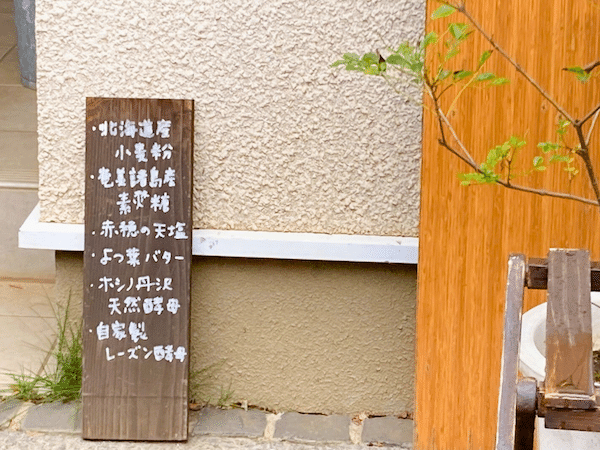 ・北海道産
小麦粉
・奄美諸島産
素焚糖
・赤穂の天塩
・よつ葉バター
・ホシノ丹沢
天然酵母
・自家製
レーズン酵母